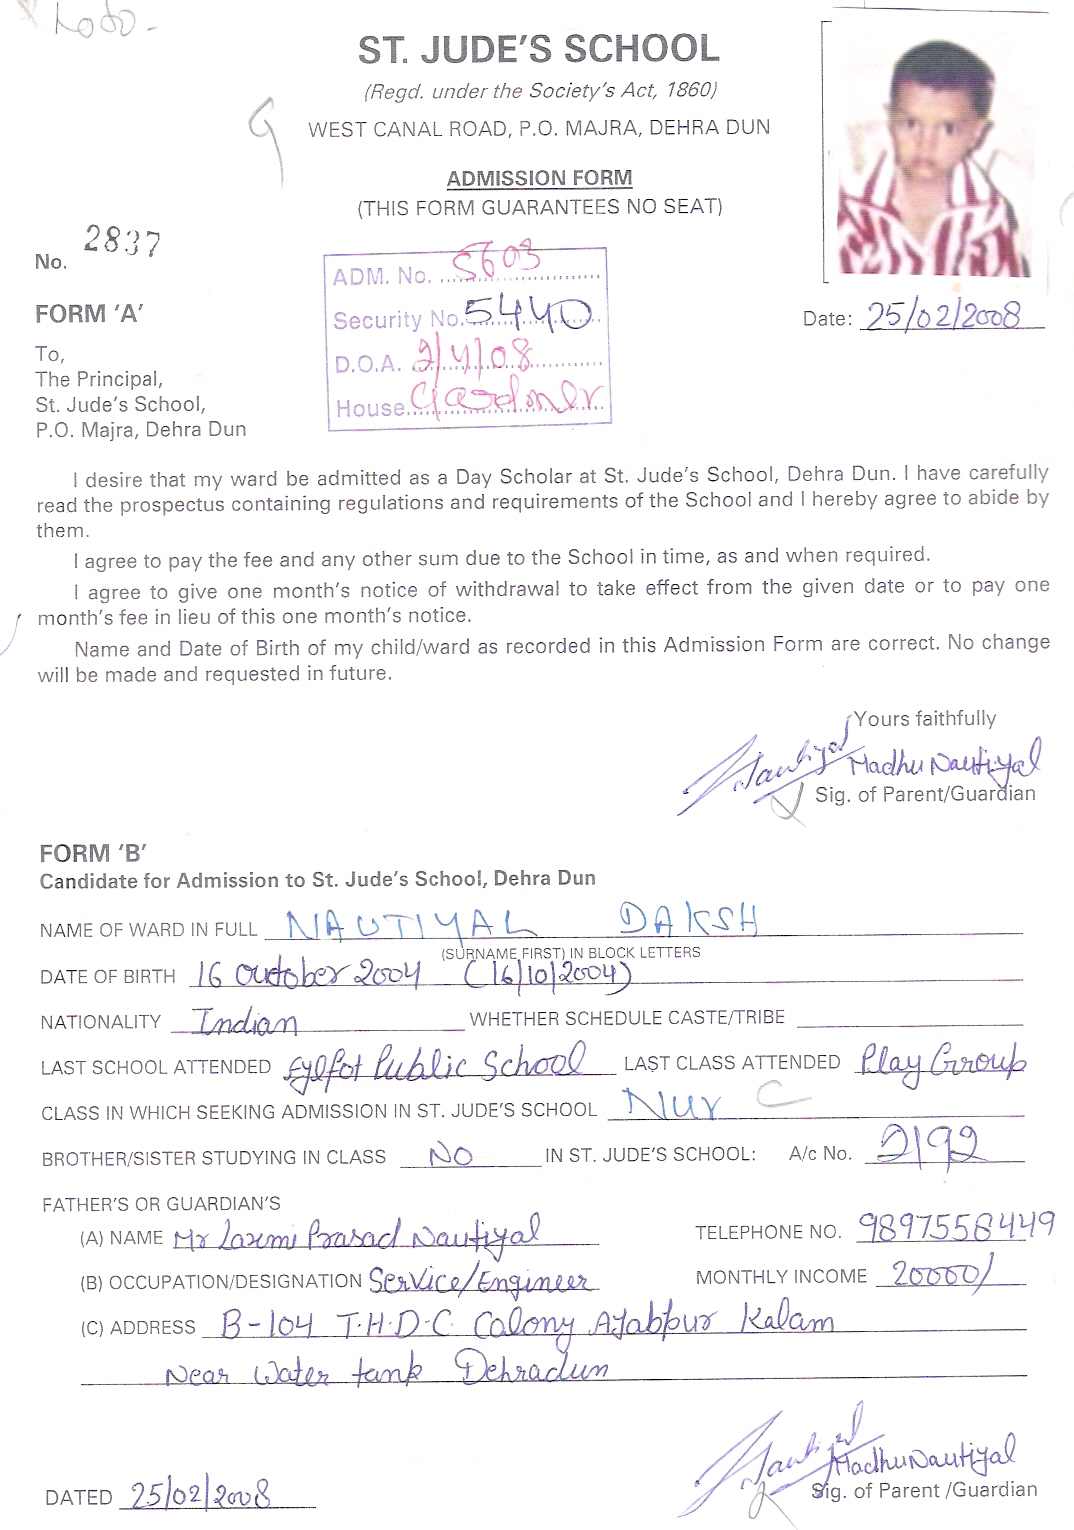 ST. JUDE'S SCHOOL
(Regd. under the Society's Act, 1860)
WEST CANAL ROAD, P.O. MAJRA, DEHRA DUN
ADMISSION FORM
(THIS FORM GUARANTEES NO SEAT)
No. 2837
ADM. No. 5603
Security No. 5440
D.O.A. 2/4/08
House Gardner
Date: 25/02/2008
FORM 'A'
To,
The Principal,
St. Jude's School,
P.O. Majra, Dehra Dun
I desire that my ward be admitted as a Day Scholar at St. Jude's School, Dehra Dun. I have carefully
read the prospectus containing regulations and requirements of the School and I hereby agree to abide by
them.
I agree to pay the fee and any other sum due to the School in time, as and when required.
I agree to give one month's notice of withdrawal to take effect from the given date or to pay one
month's fee in lieu of this one month's notice.
Name and Date of Birth of my child/ward as recorded in this Admission Form are correct. No change
will be made and requested in future.
Yours faithfully
Nautiyal Madhu Nautiyal
Sig. of Parent/Guardian
FORM 'B'
Candidate for Admission to St. Jude's School, Dehra Dun
NAME OF WARD IN FULL NAUTIYAL DAKSH
(SURNAME FIRST) IN BLOCK LETTERS
DATE OF BIRTH 16 october 2004 (16/10/2004)
NATIONALITY Indian WHETHER SCHEDULE CASTE/TRIBE
LAST SCHOOL ATTENDED Fylfot Public School LAST CLASS ATTENDED Play Group
CLASS IN WHICH SEEKING ADMISSION IN ST. JUDE'S SCHOOL Nur C
BROTHER/SISTER STUDYING IN CLASS NO IN ST. JUDE'S SCHOOL: A/c No. 2192
FATHER'S OR GUARDIAN'S
(A) NAME Mr Laxmi Prasad Nautiyal TELEPHONE NO. 9897558449
(B) OCCUPATION/DESIGNATION Service/Engineer MONTHLY INCOME 20000/
(C) ADDRESS B-104 T.H.D.C Colony Ajabpur Kalam
Near Water tank Dehradun
Nautiyal Madhu Nautiyal
DATED 25/02/2008 Sig. of Parent /Guardian